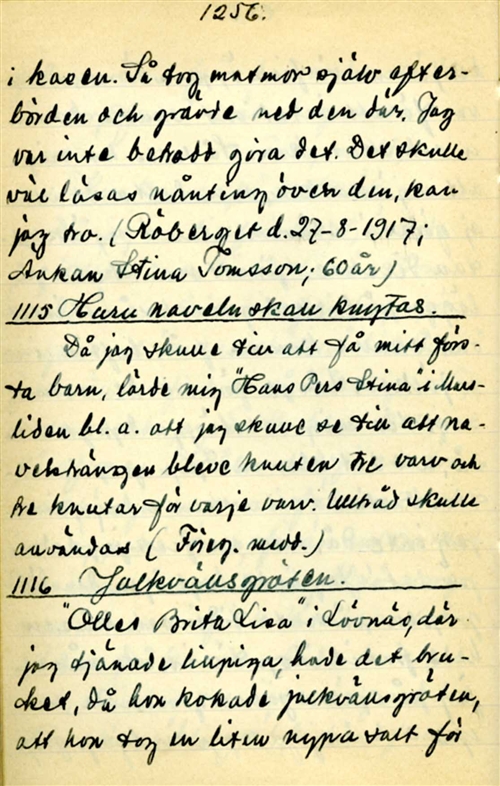 1256.
i kasen. Så tog matmor själv efter-
börden och grävde ned den där. Jag
var inte betrodd göra det. Det skulle
väl läsas nånting över den, kan
jag tro. (Råberget d. 27-8-1917;
Änkan Stina Tomsson; 60 år)
1115 Huru naveln skall knytas.
Då jag skulle till att få mitt förs-
ta barn, lärde mig "Hans Pers Stina" i Mars-
liden bl. a. att jag skulle se till att na-
velsträngen bleve knuten tre varv och
tre knutar för varje varv. Ulltråd skulle
användas (Föreg. medd.)
1116 Julkvällsgröten.
"Olles Brita Lisa" i Lövnäs, där
jag tjänade lillpiga, hade det bru-
ket, då hon kokade julkvällsgröten,
att hon tog en liten nypa salt för